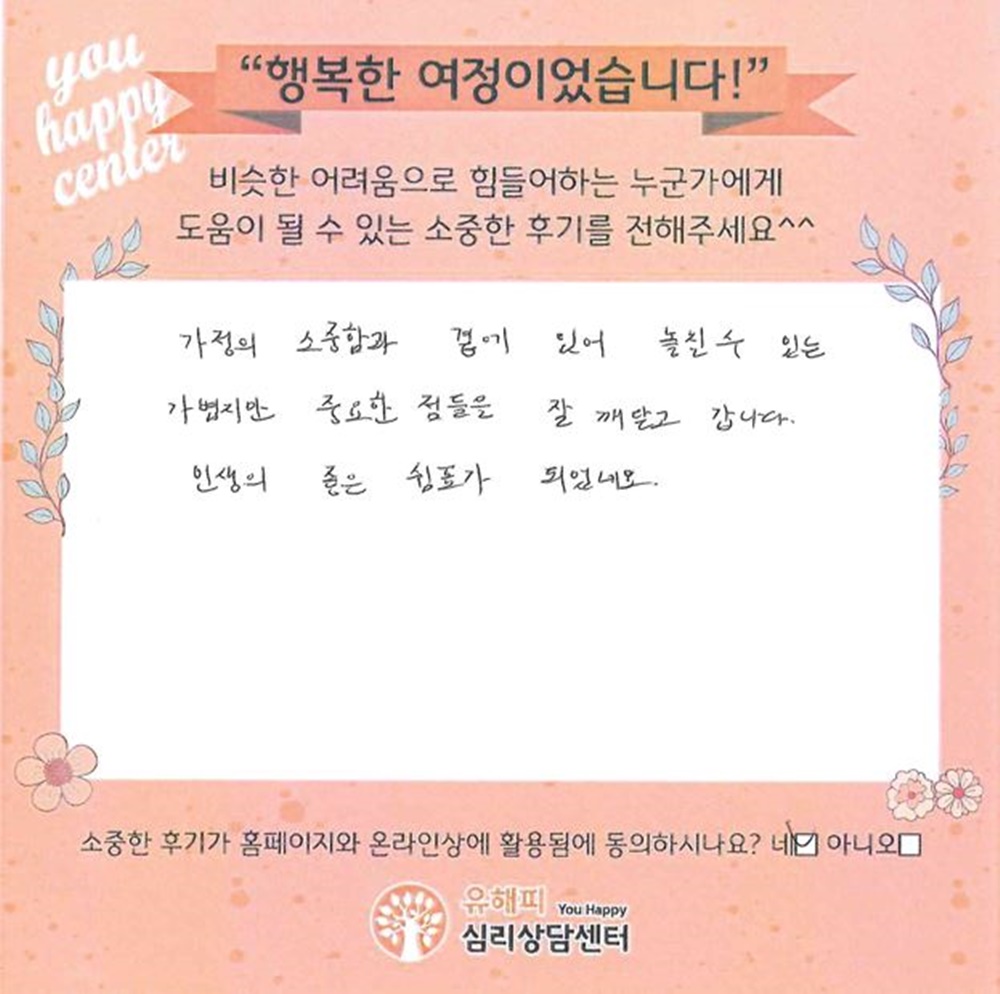 you
happy
center
“행복한 여정이었습니다!”
비슷한 어려움으로 힘들어하는 누군가에게
도움이 될 수 있는 소중한 후기를 전해주세요^^
가정의 소중함과 곁에 있어 놓친 수 있는
가볍지만 중요한 점들을 잘 깨닫고 갑니다.
인생의 좋은 쉼표가 되었네요.
소중한 후기가 홈페이지와 온라인상에 활용됨에 동의하시나요? 네 아니오
유해피 You Happy
심리상담센터